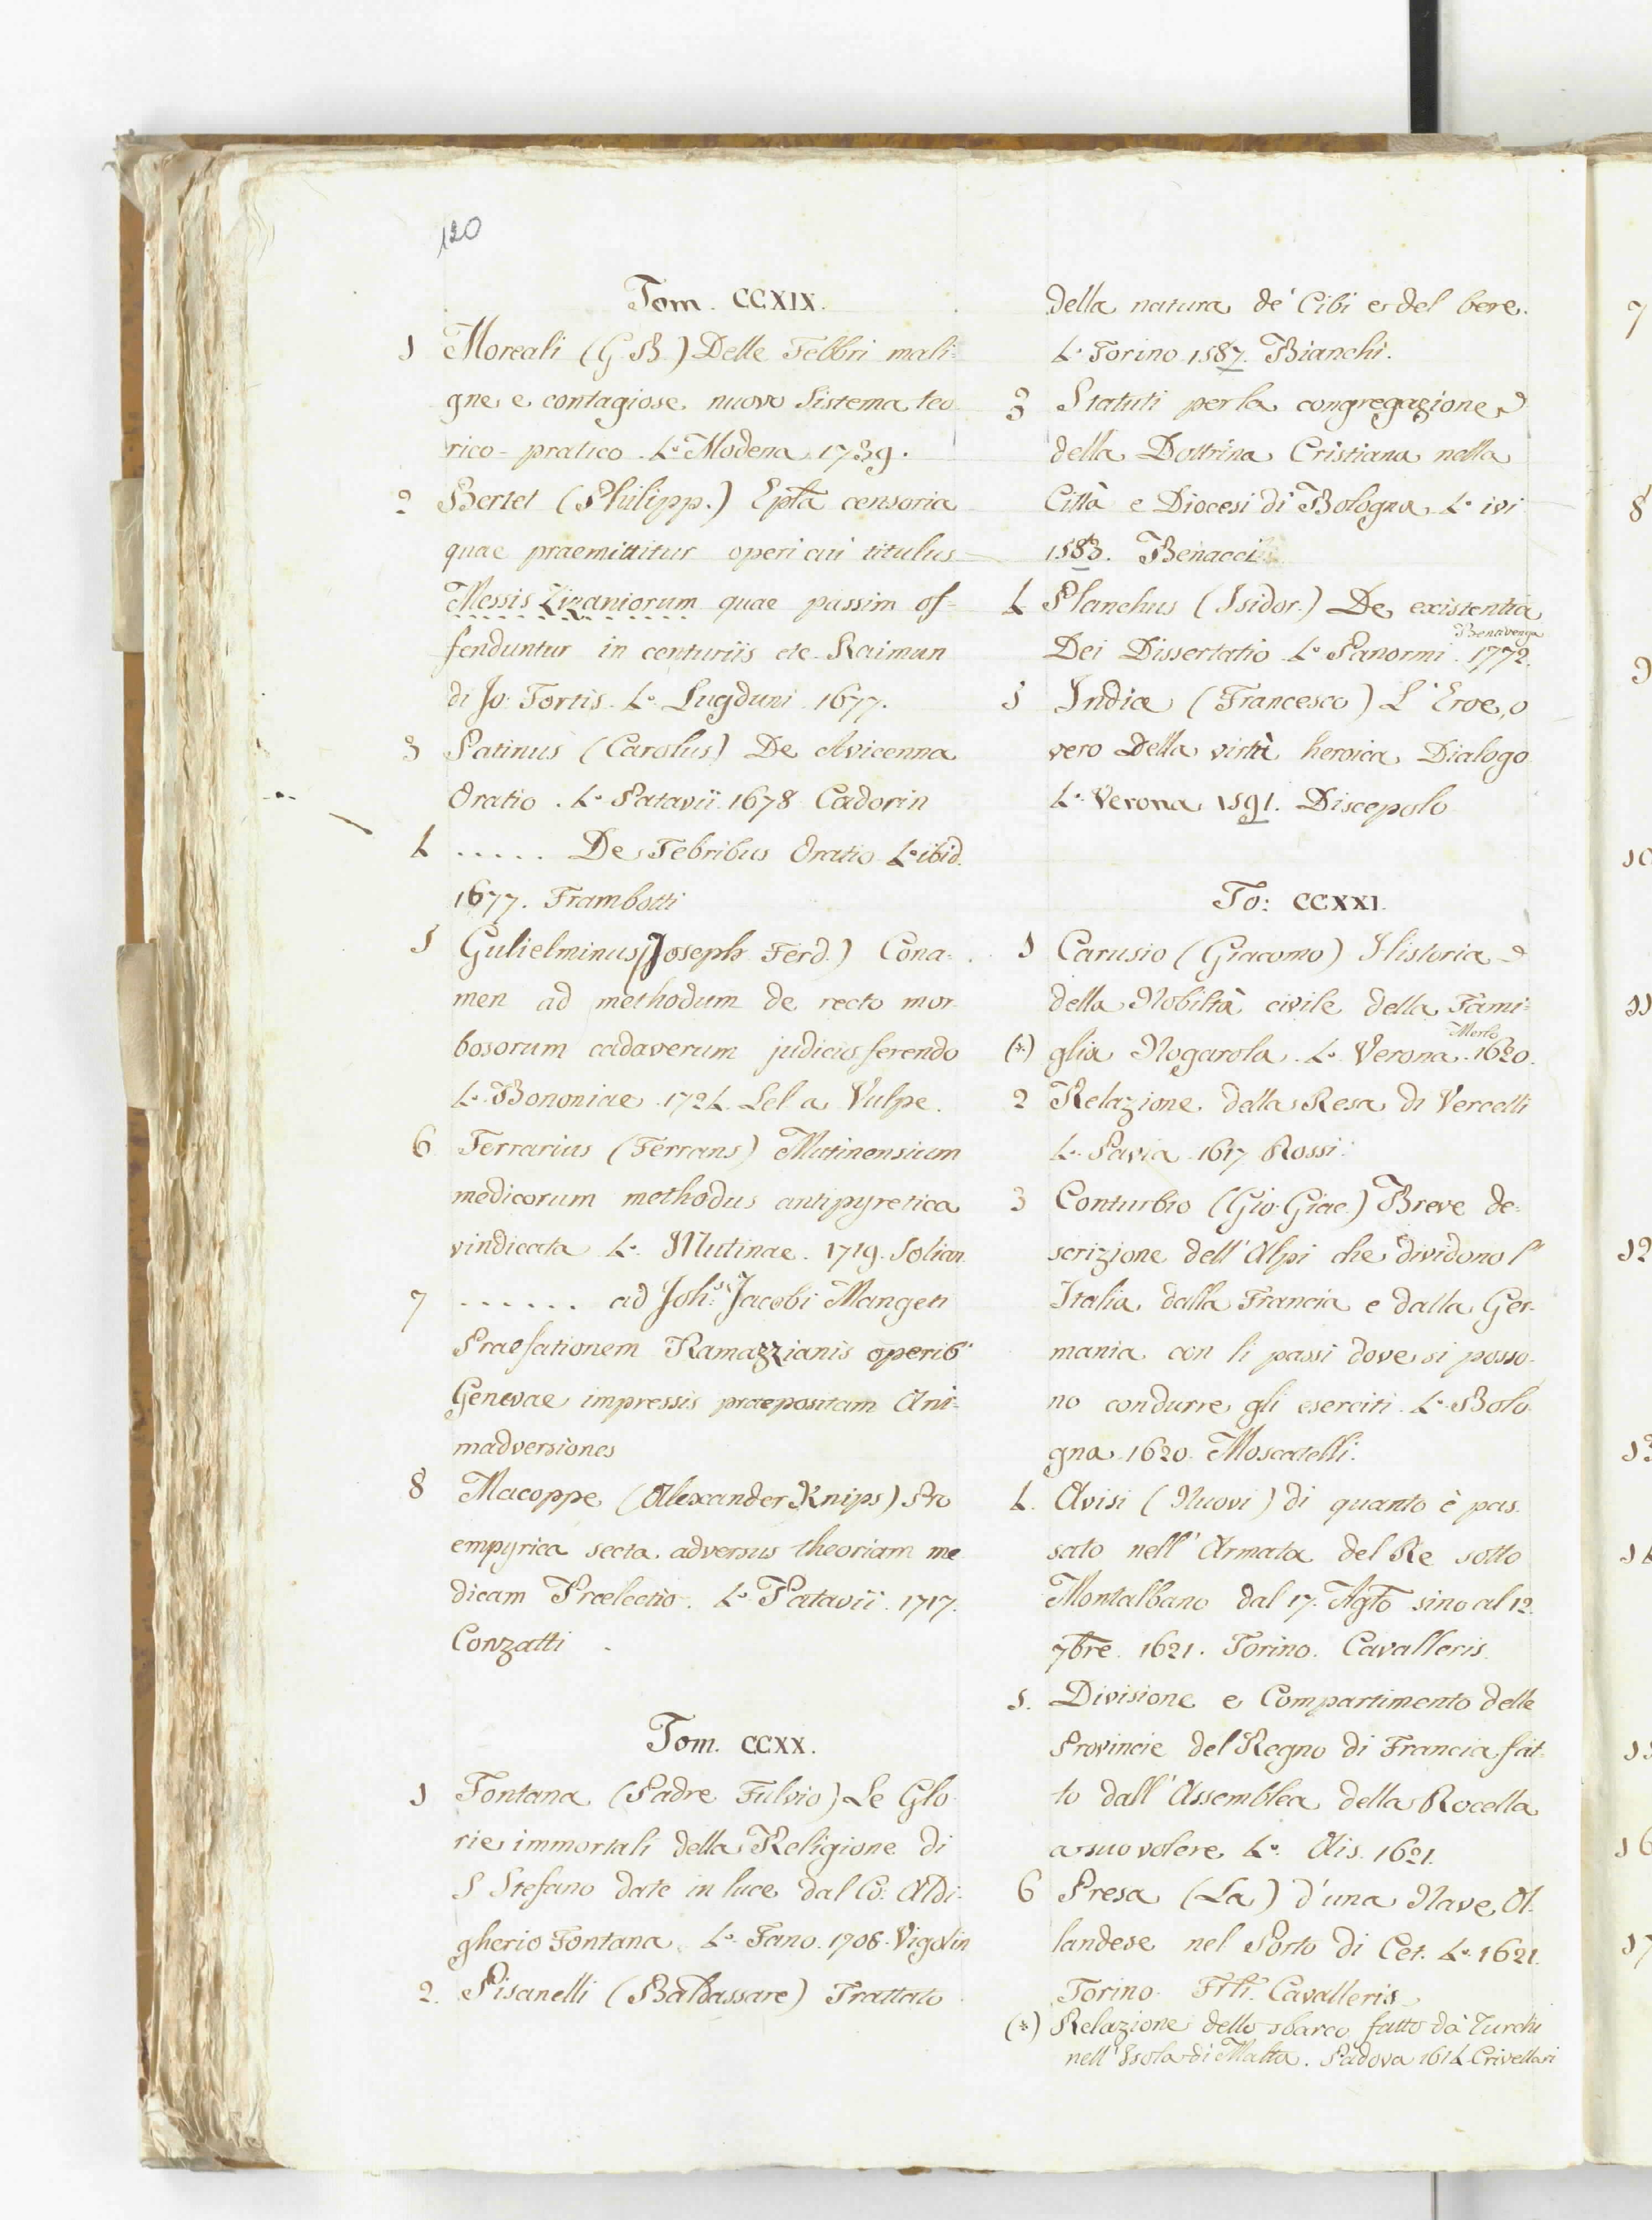 120
Tom. CCXIX.
1 Moreali (G. B.) Delle Febbri mali=
gne e contagiose nuovo Sistema teo
rico-pratico. 4.° Modena 1739.
2 Bertet (Philipp.) Epla censoria
quae praemittitur operi cui titulus
Messis Zizaniorum quae passim of=
fenduntur in centuriis etc. Raimun
di Jo: Fortis. 4.° Lugduni 1677.
3 Patinus (Carolus) De Avicenna
Oratio. 4.° Patavii 1678 Cadorin
4 ..... De Febribus Oratio 4.° ibid.
1677. Frambotti
5 Gulielminus (Joseph Ferd.) Cona=
men ad methodum de recto mor
bosorum cadaverum judicio ferendo
4.° Bononiae 1724. Lel. a Vulpe.
6 Ferrarius (Ferrans) Mutinensium
medicorum methodus antipyretica
vindicata 4.° Mutinae. 1719. Solian.
7 ...... ad Joh:s Jacobi Mangeti
Praefationem Ramazzianis operib'
Genevae impressis praepositam Ani=
madversiones
8 Macoppe (Alexander Knips) Pro
empyrica secta adversus theoriam me
dicam Praelectio. 4.° Patavii. 1717.
Conzatti.
Tom. CCXX.
1 Fontana (Padre Fulvio) Le Glo
rie immortali della Religione di
S Stefano date in luce dal Co: Aldi=
gherio Fontana 4.° Fano. 1708. Vigolin
2. Pisanelli (Baldassare) Trattato
della natura de' Cibi e del bere.
4.° Torino 1587. Bianchi.
3 Statuti per la congregazione
della Dottrina Cristiana nella
Città e Diocesi di Bologna 4.° ivi
1583. Benacci
4 Planchus (Isidor.) De existentia
Bentivenga
Dei Dissertatio 4.° Panormi. 1772.
5 India (Francesco) L'Eroe, o
vero Della virtù heroica Dialogo
4.° Verona 1591. Discepolo
To: CCXXI.
1 Carusio (Giacomo) Historia
della Nobiltà civile della Fami=
Merlo
(*) glia Nogarola. 4.° Verona. 1620.
2 Relazione della Resa di Vercelli
4.° Pavia 1617 Rossi.
3 Conturbio (Gio. Giac.) Breve de=
scrizione dell'Alpi che dividono l'
Italia dalla Francia e dalla Ger=
mania con li passi dove si posso=
no condurre gli eserciti. 4.° Bolo
gna 1620. Moscatelli.
4. Avisi (Nuovi) di quanto è pas
sato nell'Armata del Re sotto
Montalbano dal 17. Agto sino al 12.
7bre 1621. Torino. Cavalleris.
5. Divisione e Compartimento delle
Provincie del Regno di Francia fat
to dall'Assemblea della Rocella
a suo volere 4.° Ais. 1621.
6 Presa (La) d'una Nave Ol
landese nel Porto di Cet. 4.° 1621.
Torino. Frti. Cavalleris
(*) Relazione dello sbarco fatto da' Turchi
nell'Isola di Malta. Padova 1614 Crivellari